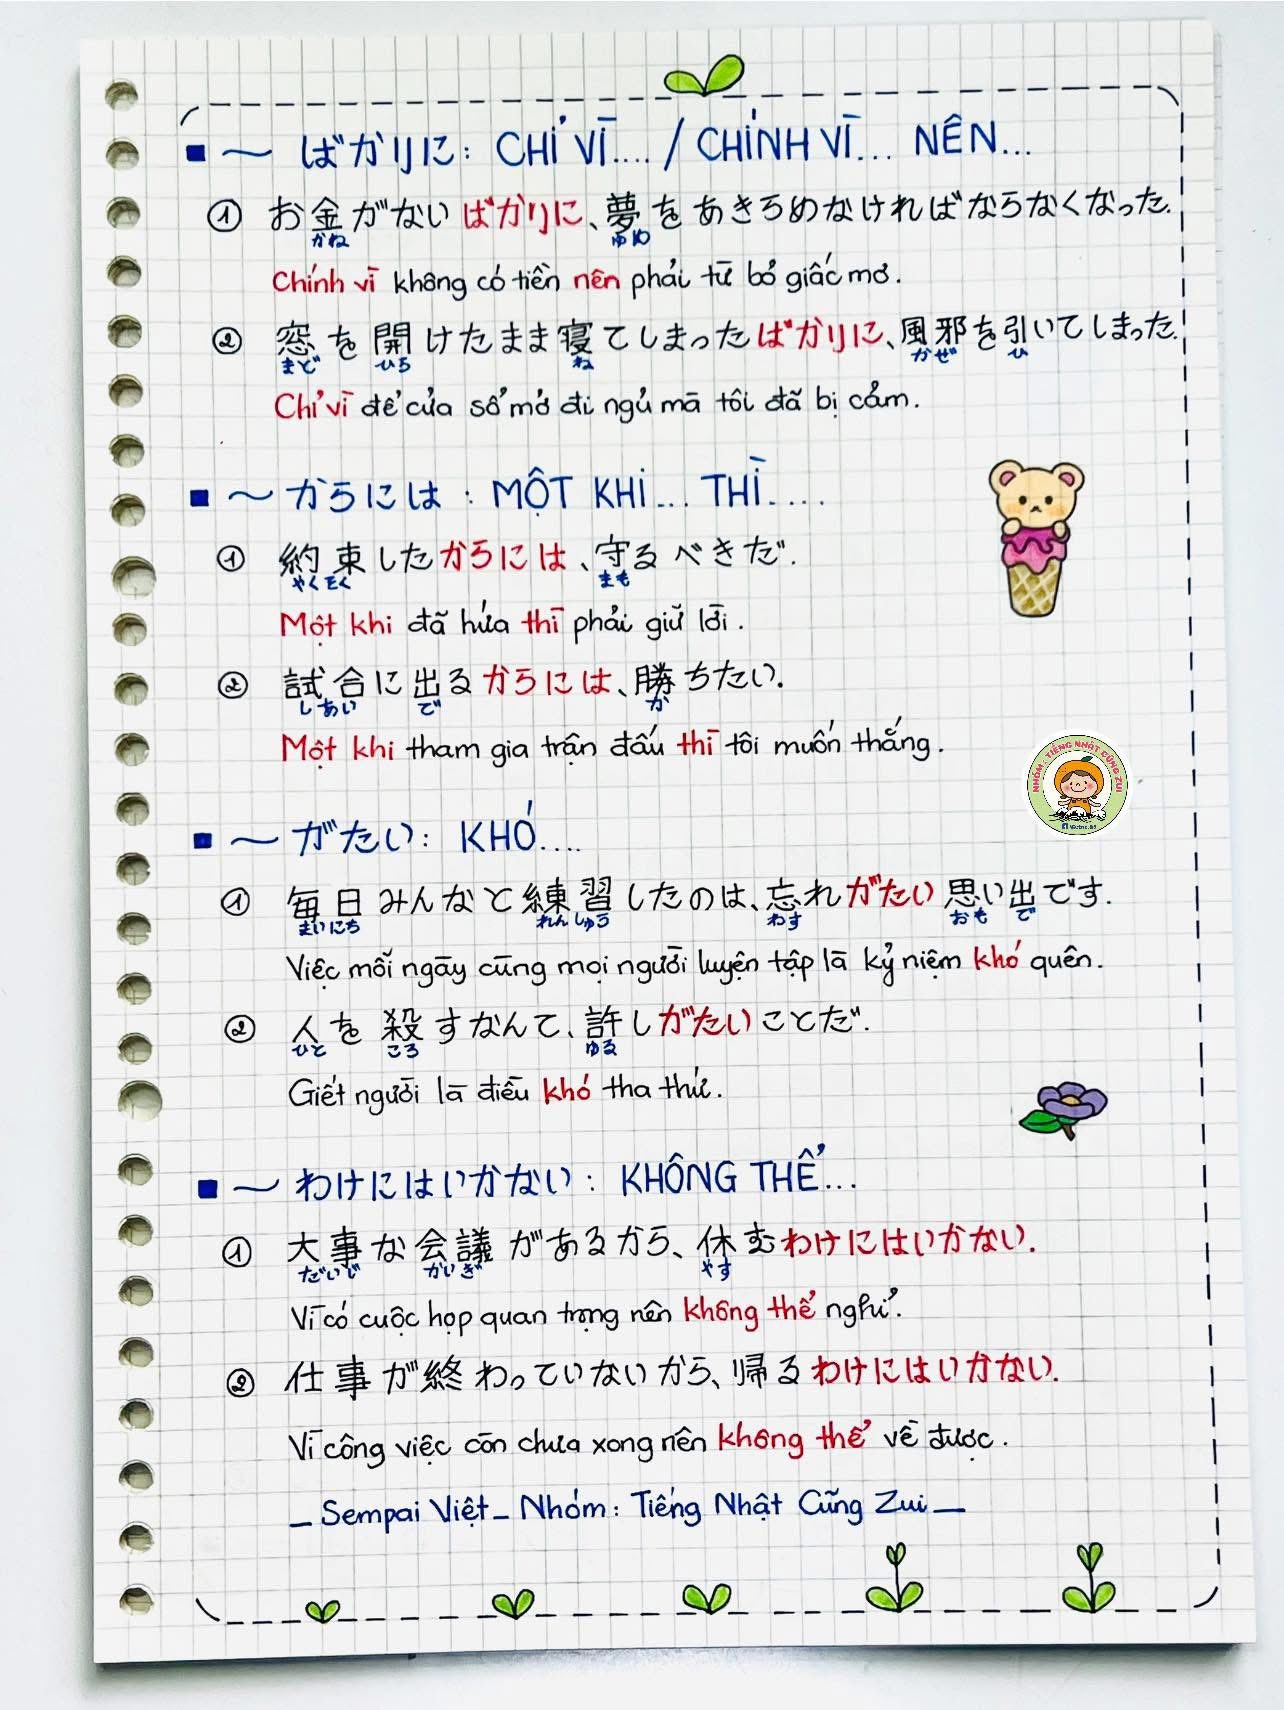 ~ ばかりに: CHỈ VÌ.... / CHÍNH VÌ... NÊN...
① お金がないばかりに、夢をあきらめなければならなくなった.
かね ゆめ
Chính vì không có tiền nên phải từ bỏ giấc mơ.
② 窓を開けたまま寝てしまったばかりに、風邪を引いてしまった.
まど ひら ね かぜ ひ
Chỉ vì để cửa sổ mở đi ngủ mà tôi đã bị cảm.
~ からには : MỘT KHI... THÌ....
① 約束したからには、守るべきだ.
やくそく まも
Một khi đã hứa thì phải giữ lời.
② 試合に出るからには、勝ちたい.
しあい で か
Một khi tham gia trận đấu thì tôi muốn thắng.
NHÓM: TIẾNG NHẬT CŨNG ZUI
~ がたい: KHÓ....
① 毎日みんなと練習したのは、忘れがたい思い出です.
まいにち れんしゅう わす おも で
Việc mỗi ngày cùng mọi người luyện tập là kỷ niệm khó quên.
② 人を殺すなんて、許しがたいことだ.
ひと ころ ゆる
Giết người là điều khó tha thứ.
~ わけにはいかない: KHÔNG THỂ...
① 大事な会議があるから、休むわけにはいかない.
だいじ かいぎ やす
Vì có cuộc họp quan trọng nên không thể nghỉ.
② 仕事が終わっていないから、帰るわけにはいかない.
Vì công việc còn chưa xong nên không thể về được.
_ Sempai Việt _ Nhóm: Tiếng Nhật Cũng Zui _